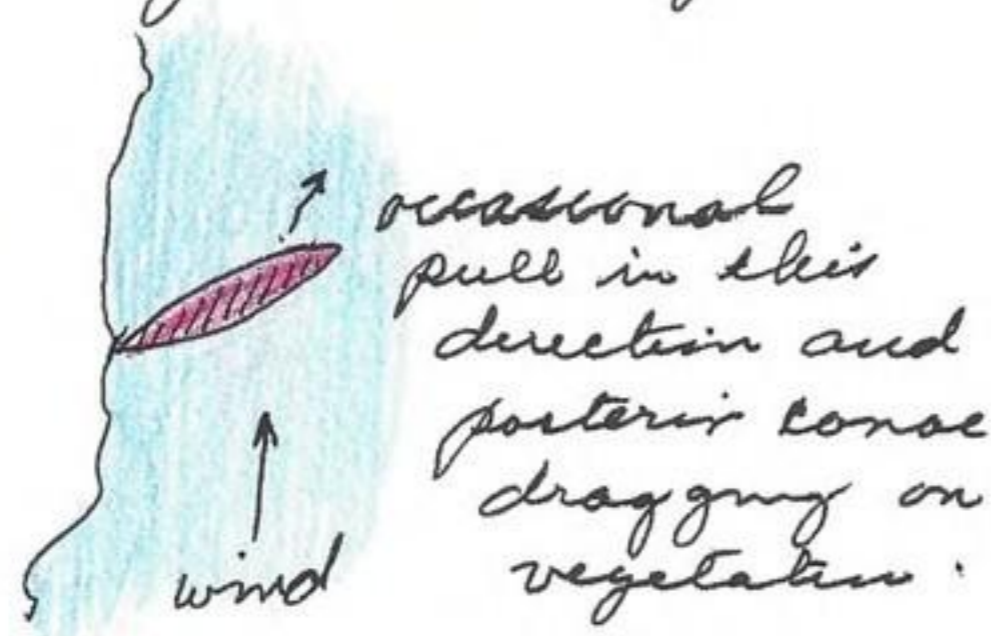 occasional
pull in this
direction and
posterior canoe
dragging on
vegetation.
wind